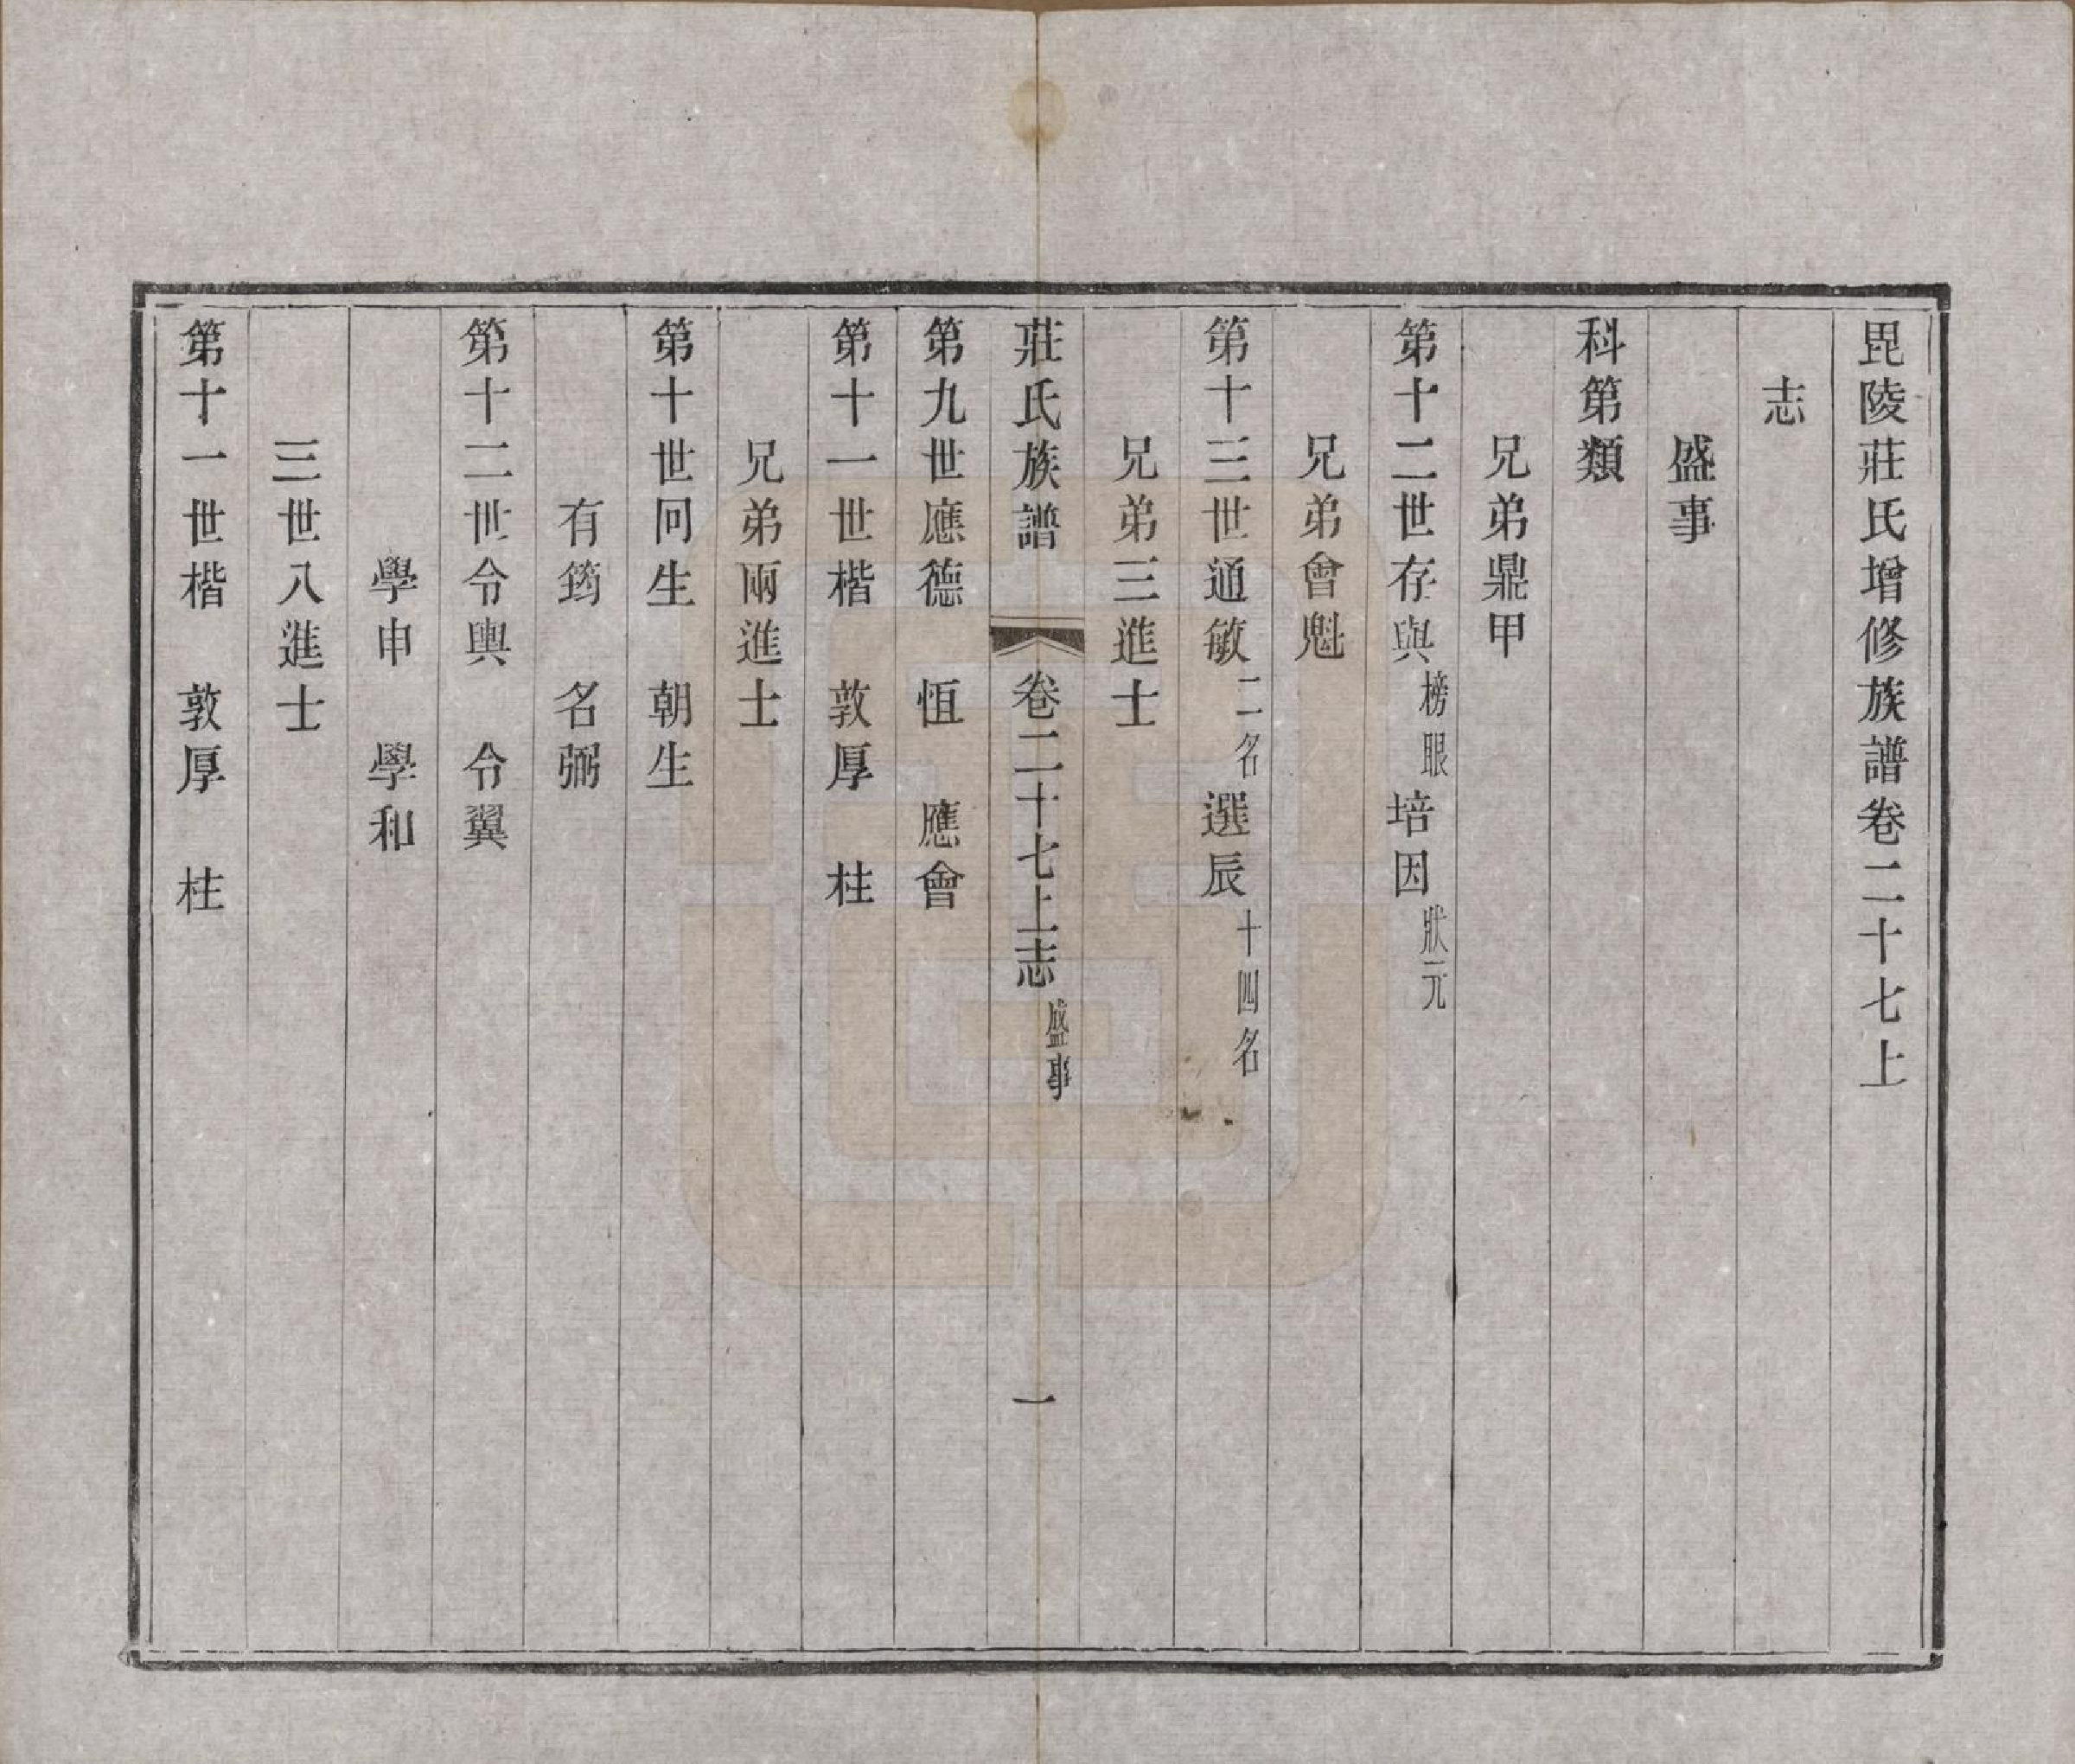 毘陵莊氏增修族譜卷二十七上
志
盛事
科第類
兄弟鼎甲
第十二世存與榜眼培因狀元
兄弟會魁
第十三世通敏二名選辰十四名
兄弟三進士
莊氏族譜 卷二十七上志盛事 一
第九世應德 恆 應會
第十一世楷 敦厚 柱
兄弟兩進士
第十世囘生 朝生
有筠 名弼
第十二世令輿 令翼
學申 學和
三世八進士
第十一世楷 敦厚 柱